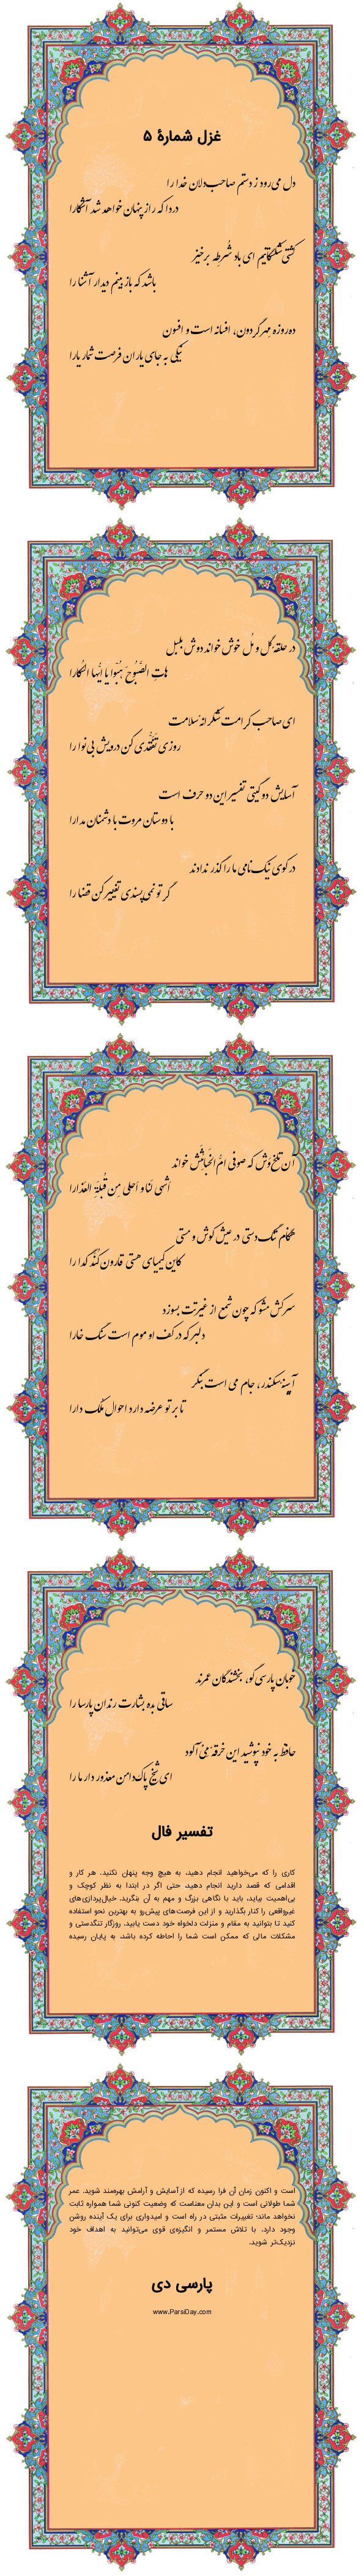 غزل شمارهٔ ۵
دل می‌رود ز دستم صاحب‌دلان خدا را
دردا که راز پنهان خواهد شد آشکارا
کشتی‌شکستگانیم ای باد شُرطِه برخیز
باشد که بازبینم دیدار آشنا را
ده‌روزه مهر گردون، افسانه است و افسون
نیکی به جای یاران فرصت شمار یارا
در حلقهٔ گل و مُل خوش خواند دوش بلبل
هاتِ الصَّبُوحَ هُبّوا یا ایُّها السُّکارا
ای صاحب کرامت شکرانهٔ سلامت
روزی تَفَقُّدی کن درویش بی‌نوا را
آسایش دو گیتی تفسیر این دو حرف است
با دوستان مروت با دشمنان مدارا
در کوی نیک‌نامی ما را گذر ندادند
گر تو نمی‌پسندی تغییر کن قضا را
آن تلخ‌وَش که صوفی امُّ‌الخَبائِثَش خواند
اَشهی لَنا و اَحلی مِن قُبلَةِ العَذارا
هنگام تنگ‌دستی در عیش کوش و مستی
کاین کیمیای هستی قارون کُنَد گدا را
سرکش مشو که چون شمع از غیرتت بسوزد
دلبر که در کف او موم است سنگ خارا
آیینهٔ سکندر، جام می است بنگر
تا بر تو عرضه دارد احوال مُلک دارا
خوبان پارسی‌گو، بخشندگان عمرند
ساقی بده بشارت رندان پارسا را
حافظ به خود نپوشید این خرقهٔ می‌آلود
ای شیخ پاک‌دامن معذور دار ما را
تفسیر فال
کاری را که می‌خواهید انجام دهید، به هیچ وجه پنهان نکنید. هر کار و
اقدامی که قصد دارید انجام دهید، حتی اگر در ابتدا به نظر کوچک و
بی‌اهمیت بیاید، باید با نگاهی بزرگ و مهم به آن بنگرید. خیال‌پردازی‌های
غیرواقعی را کنار بگذارید و از این فرصت‌های پیش‌رو به بهترین نحو استفاده
کنید تا بتوانید به مقام و منزلت دلخواه خود دست یابید. روزگار تنگدستی و
مشکلات مالی که ممکن است شما را احاطه کرده باشد، به پایان رسیده
است و اکنون زمان آن فرا رسیده که از آسایش و آرامش بهره‌مند شوید. عمر
شما طولانی است و این بدان معناست که وضعیت کنونی شما همواره ثابت
نخواهد ماند؛ تغییرات مثبتی در راه است و امیدواری برای یک آینده روشن
وجود دارد. با تلاش مستمر و انگیزه‌ی قوی می‌توانید به اهداف خود
نزدیک‌تر شوید.
پارسی دی
www.ParsiDay.com